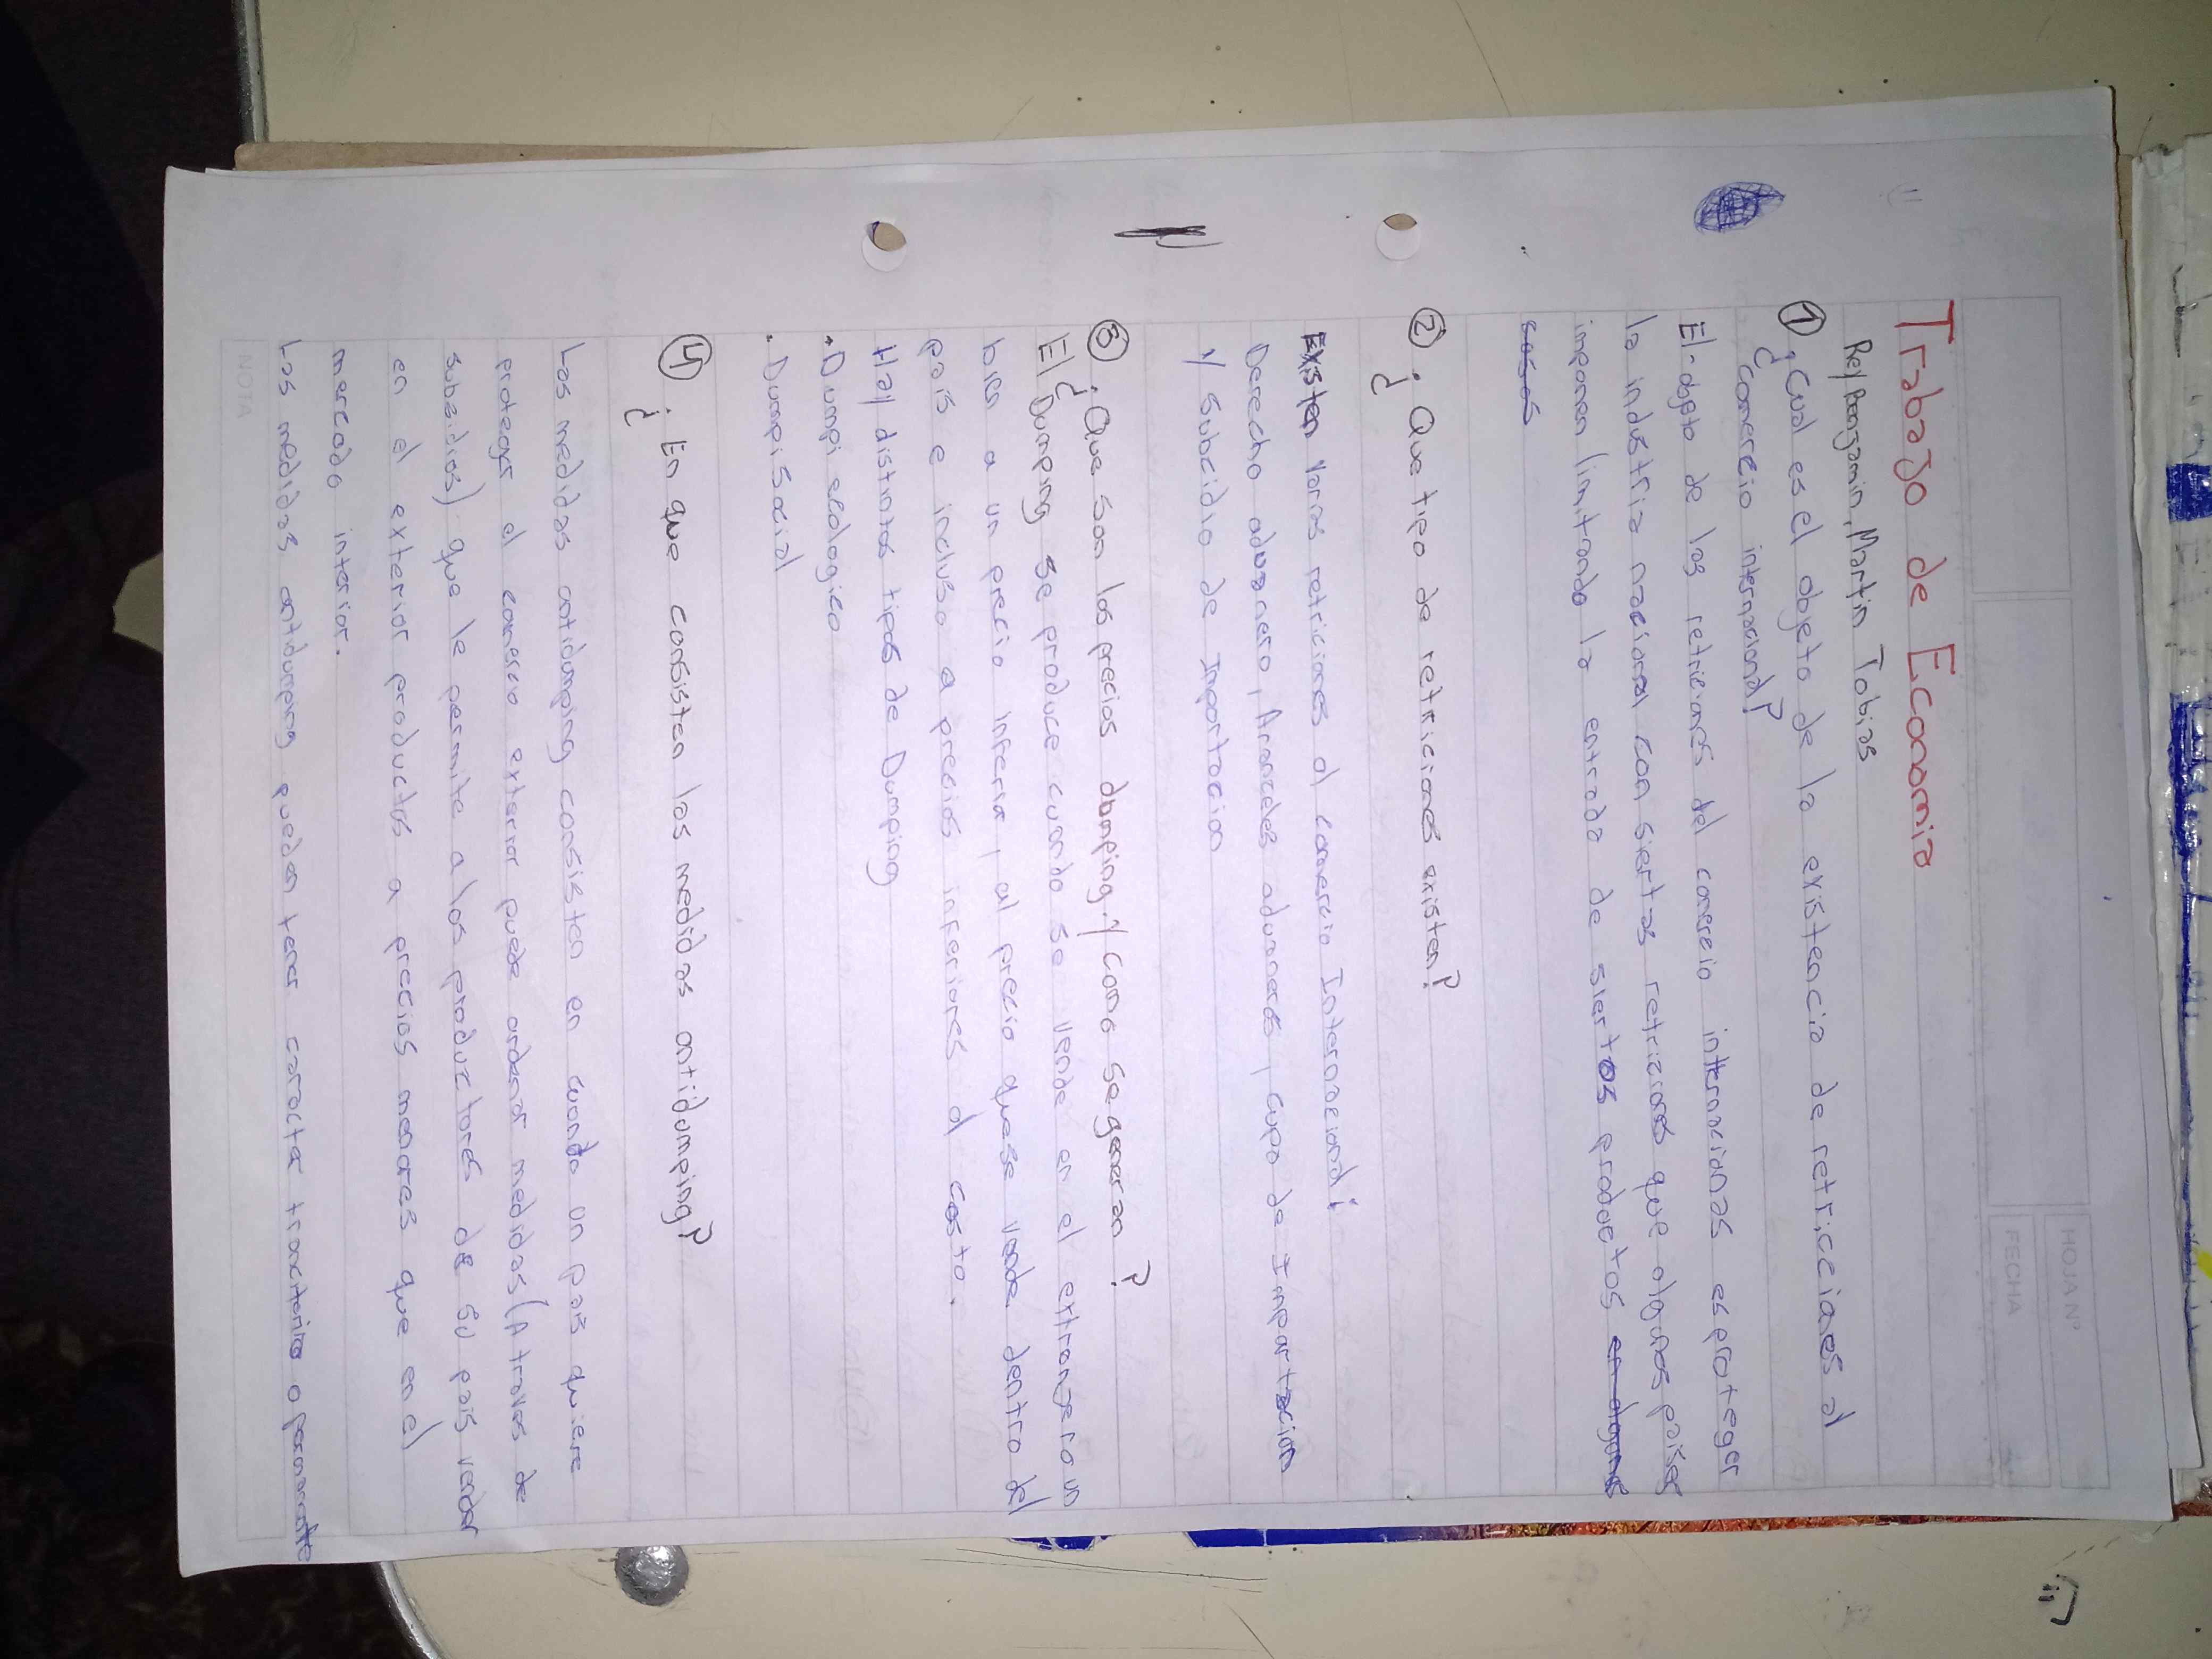 HOJA Nº
FECHA
Trabajo de Economia
Rey Benjamin, Martin Tobias
① ¿Cual es el objeto de la existencia de retricciones al
comercio internacional?
El objeto de las retriciones del comercio internacionas es proteger
la industria nacional con siertas retriciones que algunos paises
imponen limitando la entrada de siertos productos en algunos
casos
② ¿Que tipo de retriciones existen?
Existen varias retriciones al comercio Internacional:
Derecho aduanero, Aranceles aduaneros, cupo de Importacion
y subcidio de Importacion
③ ¿Que son los precios dumping y como se generan?
El Dumping se produce cuando se vende en el extranzero un
bien a un precio inferior, al precio que se vende dentro del
pais e incluso a precios inferiores al costo.
Hay distintos tipos de Dumping
• Dumpi ecologico
• Dumpi Social
④ ¿En que consisten las medidas antidumping?
Las medidas antidumping consisten en cuando un pais quiere
proteger el comercio exterior puede ordenar medidas (A traves de
subsidios) que le permite a los productores de su pais vender
en el exterior productos a precios menores que en el
mercado interior.
Las medidas antidumping pueden tener caracter transitorio o permanente
NOTA